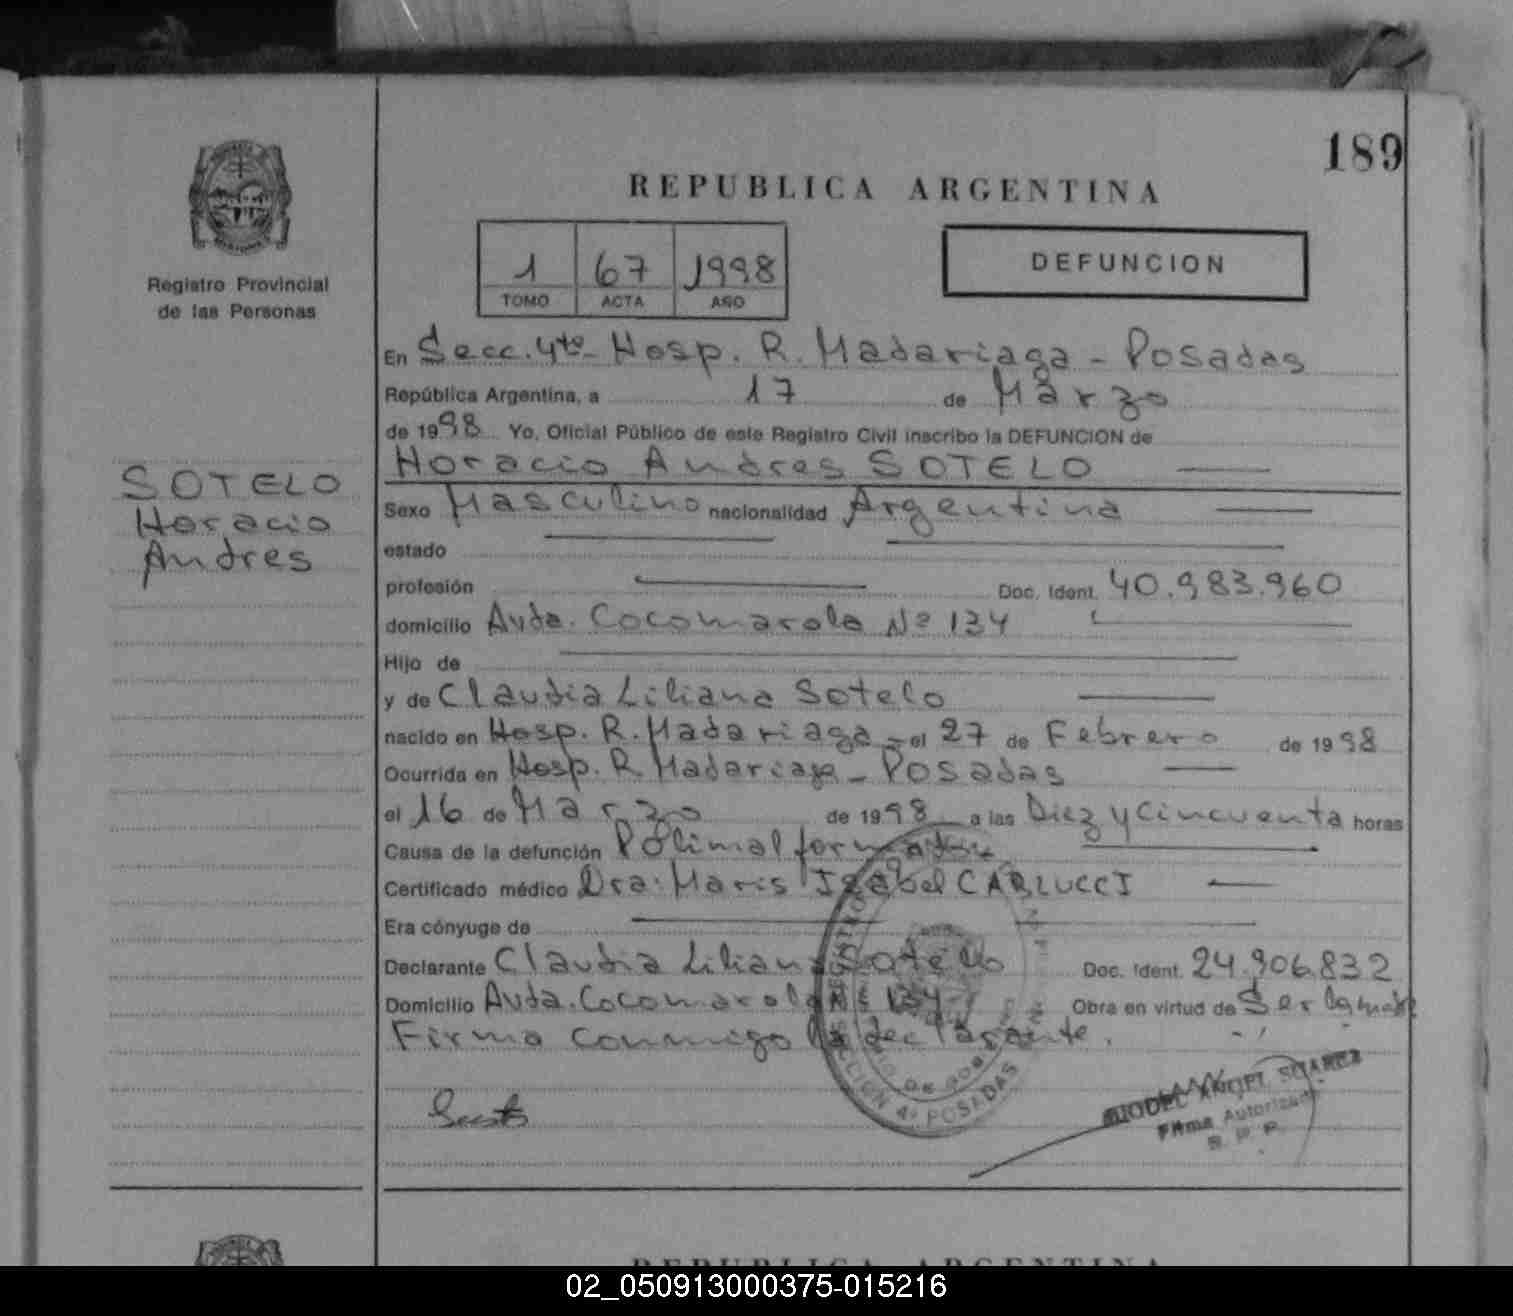 189
REPUBLICA ARGENTINA
Registro Provincial
de las Personas
1 67 1998
TOMO ACTA AÑO
DEFUNCION
SOTELO
Horacio
Andres
En Secc. 4ta - Hosp. R. Madariaga - Posadas
República Argentina, a 17 de Marzo
de 1998 Yo, Oficial Público de este Registro Civil inscribo la DEFUNCION de
Horacio Andres SOTELO
Sexo Masculino nacionalidad Argentina
estado
profesión Doc. Ident. 40.983.960
domicilio Avda. Cocomarola Nº 134
Hijo de
y de Claudia Liliana Sotelo
nacido en Hosp. R. Madariaga - el 27 de Febrero de 1998
Ocurrida en Hosp. R. Madariaga - Posadas
el 16 de Marzo de 1998 a las Diez y Cincuenta horas
Causa de la defunción Polimalformado
Certificado médico Dra: Maris Isabel CARLUCCI
Era cónyuge de
Declarante Claudia Liliana Sotelo Doc. Ident. 24.906.832
Domicilio Avda. Cocomarola 134 Obra en virtud de Ser la madre
Firma conmigo la declarante.
SECCION 4ª POSADAS
ANGEL SUAREZ
Firma Autorizada
R. P. P.
REPUBLICA ARGENTINA
02_050913000375-015216